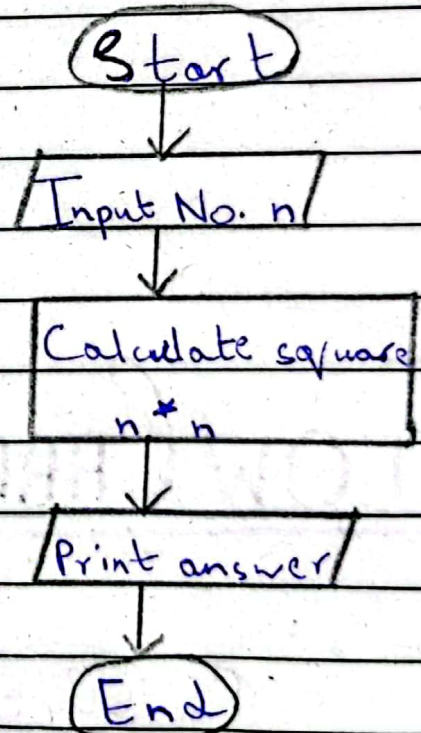 Start
Input No. n
Calculate square
n * n
Print answer
End